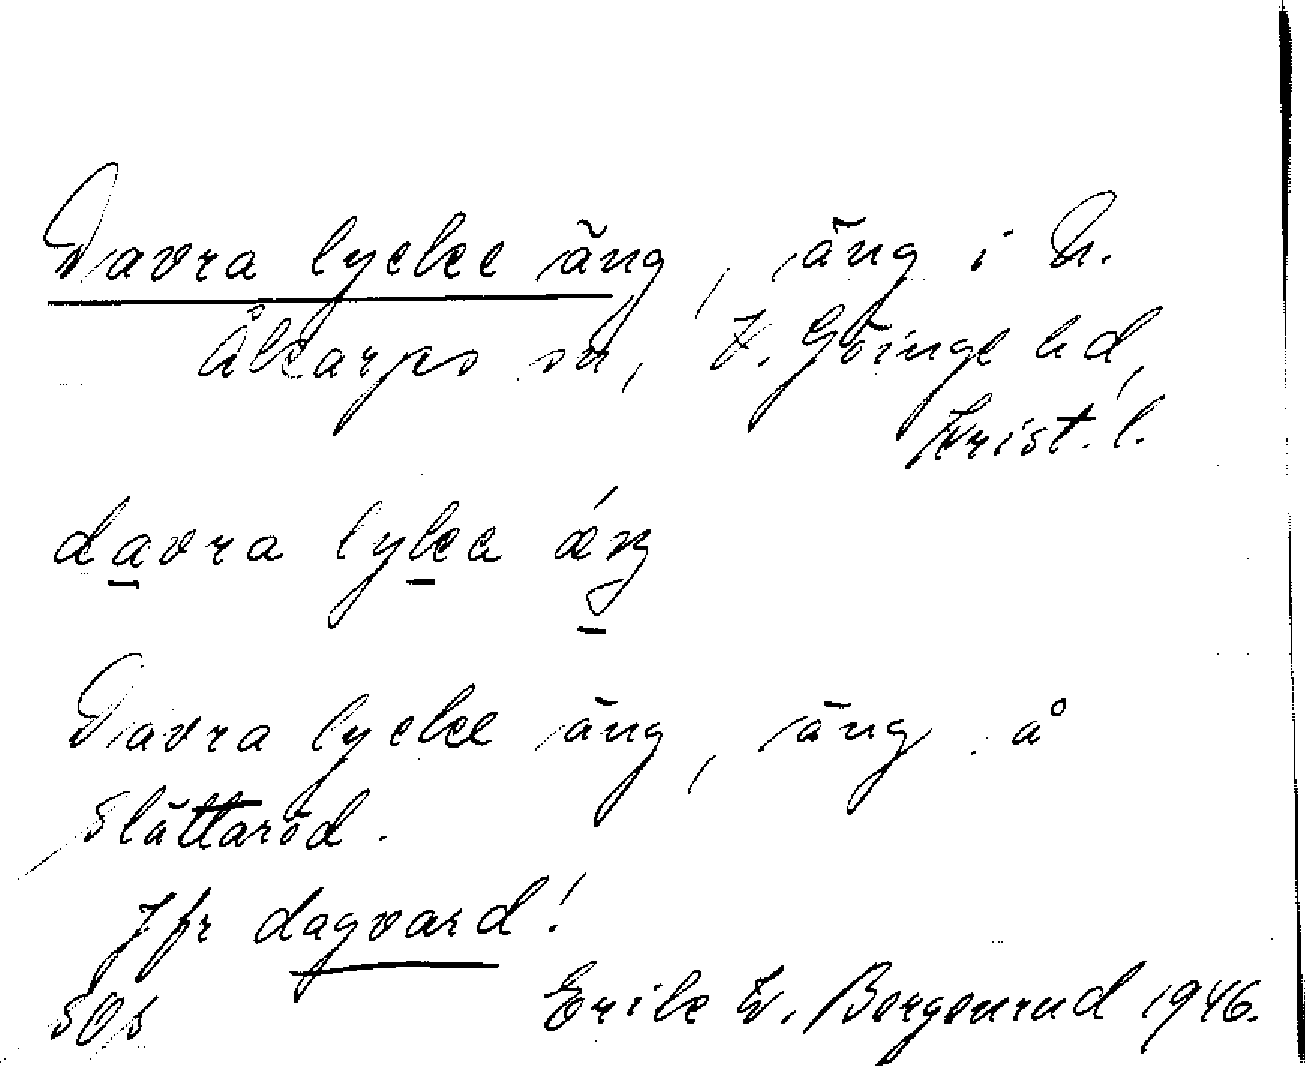 Davra lycke äng, äng i N.
Åkarps sn, V. Göinge hd,
Krist. l.
davra lyka áŋ
Davra lycke äng, äng å
Slättaröd.
Jfr dagvard!
SOS Erik W. Bergenrud 1946.